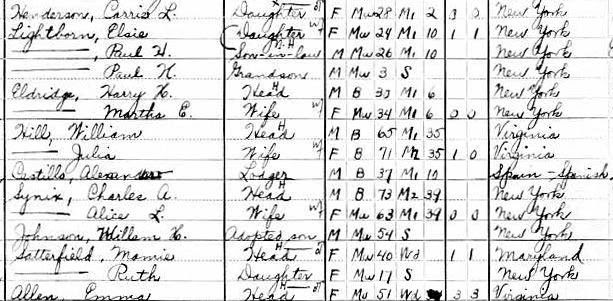 Henderson, Carrie L. Daughter F Mu 28 M1 2 3 0 New York
Lightborn, Elsie Daughter F Mu 24 M1 10 1 1 New York
——, Paul H. Son-in-law M Mu 26 M1 10 New York
—— Paul H. Grandson M Mu 3 S New York
Eldridge, Harry H. Head M B 37 M1 6 New York
—— Martha E. Wife F Mu 34 M1 6 0 0 New York
Hill, William Head M B 65 M1 35 Virginia
—— Julia Wife F B 71 M2 35 1 0 Virginia
Castillo, Lodger M B 37 M1 10 Spain - Spanish
Synix, Charles A. Head M B 73 M2 39 New York
—— Alice L. Wife F Mu 63 M1 39 0 0 New York
Johnson, Willam H. Adopted son M Mu 54 S New York
Satterfield, Mamie Head F Mu 40 Wd 1 1 Maryland
—— Ruth Daughter F Mu 17 S New York
Allen, Emma Head F Mu 51 Wd 3 3 Virginia